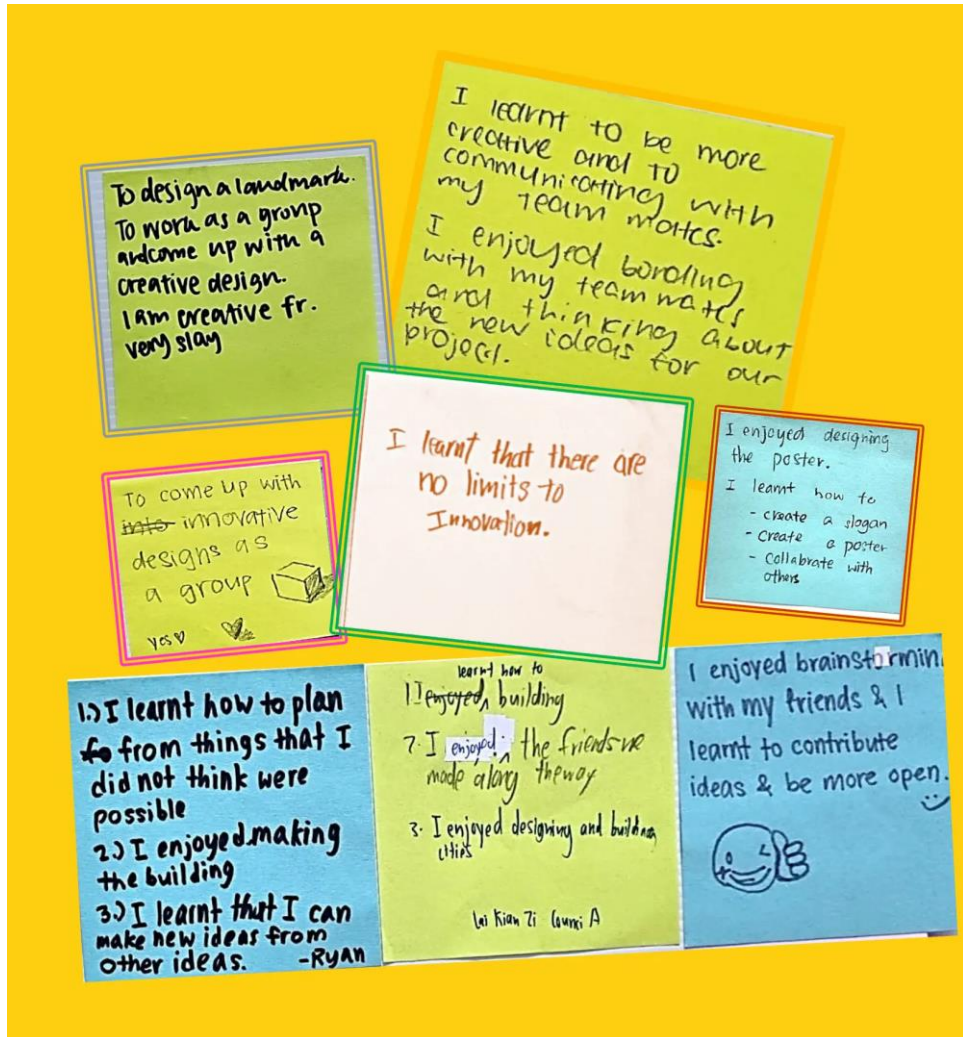 To design a landmark.
To work as a group
and come up with a
creative design.
I am creative fr.
very slay
I learnt to be more
creative and to
communicating with
my team mates.
I enjoyed bonding
with my teammates
and thinking about
the new ideas for our
project.
To come up with
into innovative
designs as
a group
yes
I learnt that there are
no limits to
Innovation.
I enjoyed designing
the poster.
I learnt how to
- create a slogan
- create a poster
- collabrate with
others
1.) I learnt how to plan
to from things that I
did not think were
possible
2.) I enjoyed making
the building
3.) I learnt that I can
make new ideas from
other ideas. -RYAN
learnt how to
1. I enjoyed building
2. I enjoyed the friends we
made along the way
3. I enjoyed designing and building
cities
Lai Kian Zi
I enjoyed brainstormin
with my friends & I
learnt to contribute
ideas & be more open.